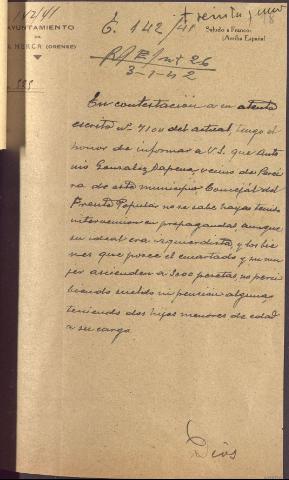 142/41
AYUNTAMIENTO
DE
LA MERCA (ORENSE)
E. 142/41 treinta y nueve
8
Saludo a Franco:
¡Arriba España!
3-1-42
En contestación a su atento
escrito nº 7100 del actual, tengo el
honor de informar a V.S. que Anto
nio Gonzalez Dapena, vecino de Perei
ra de este municipio Concejal del
Frente Popular no se sabe haya tenido
intervencion en propagandas, aunque
su ideal era izquierdista, y los bie
nes que posee el encartado y su mu
jer ascienden a 3000 pesetas no perci
biendo sueldo ni pension alguna
teniendo dos hijos menores de edad
a su cargo.
Dios